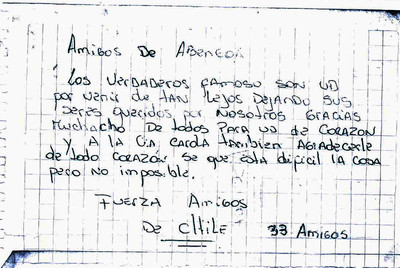 Amigos De Abengoa
Los verdaderos famoso son UD
por venir de tan lejos dejando sus
seres queridos por nosotros gracias
muchacho De todos para UD de corazon
y A la Cia carola tambien Agradecerle
de todo corazón se que está dificil la cosa
pero no imposible.
Fuerza Amigos
De cHile
33 Amigos